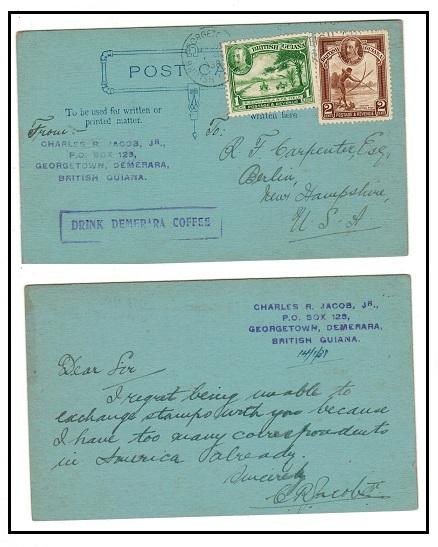 GEORGETOWN
POST CA
BRITISH GUIANA
1
POSTAGE & REVENUE
BRITISH GUIANA
2
POSTAGE & REVENUE
To be used for written or
printed matter.
written here
From:-
To:-
CHARLES R. JACOB, JR.,
P.O. BOX 128,
GEORGETOWN, DEMERARA,
BRITISH GUIANA.
R F Carpenter, Esq,
Berlin,
New Hampshire,
U. S. A
DRINK DEMERARA COFFEE
CHARLES R. JACOB, JR.,
P.O. BOX 128,
GEORGETOWN, DEMERARA,
BRITISH GUIANA.
Dear Sir
I regret being unable to
exchange stamps with you because
I have too many correspondents
in America already.
Sincerely
C R Jacob Jr